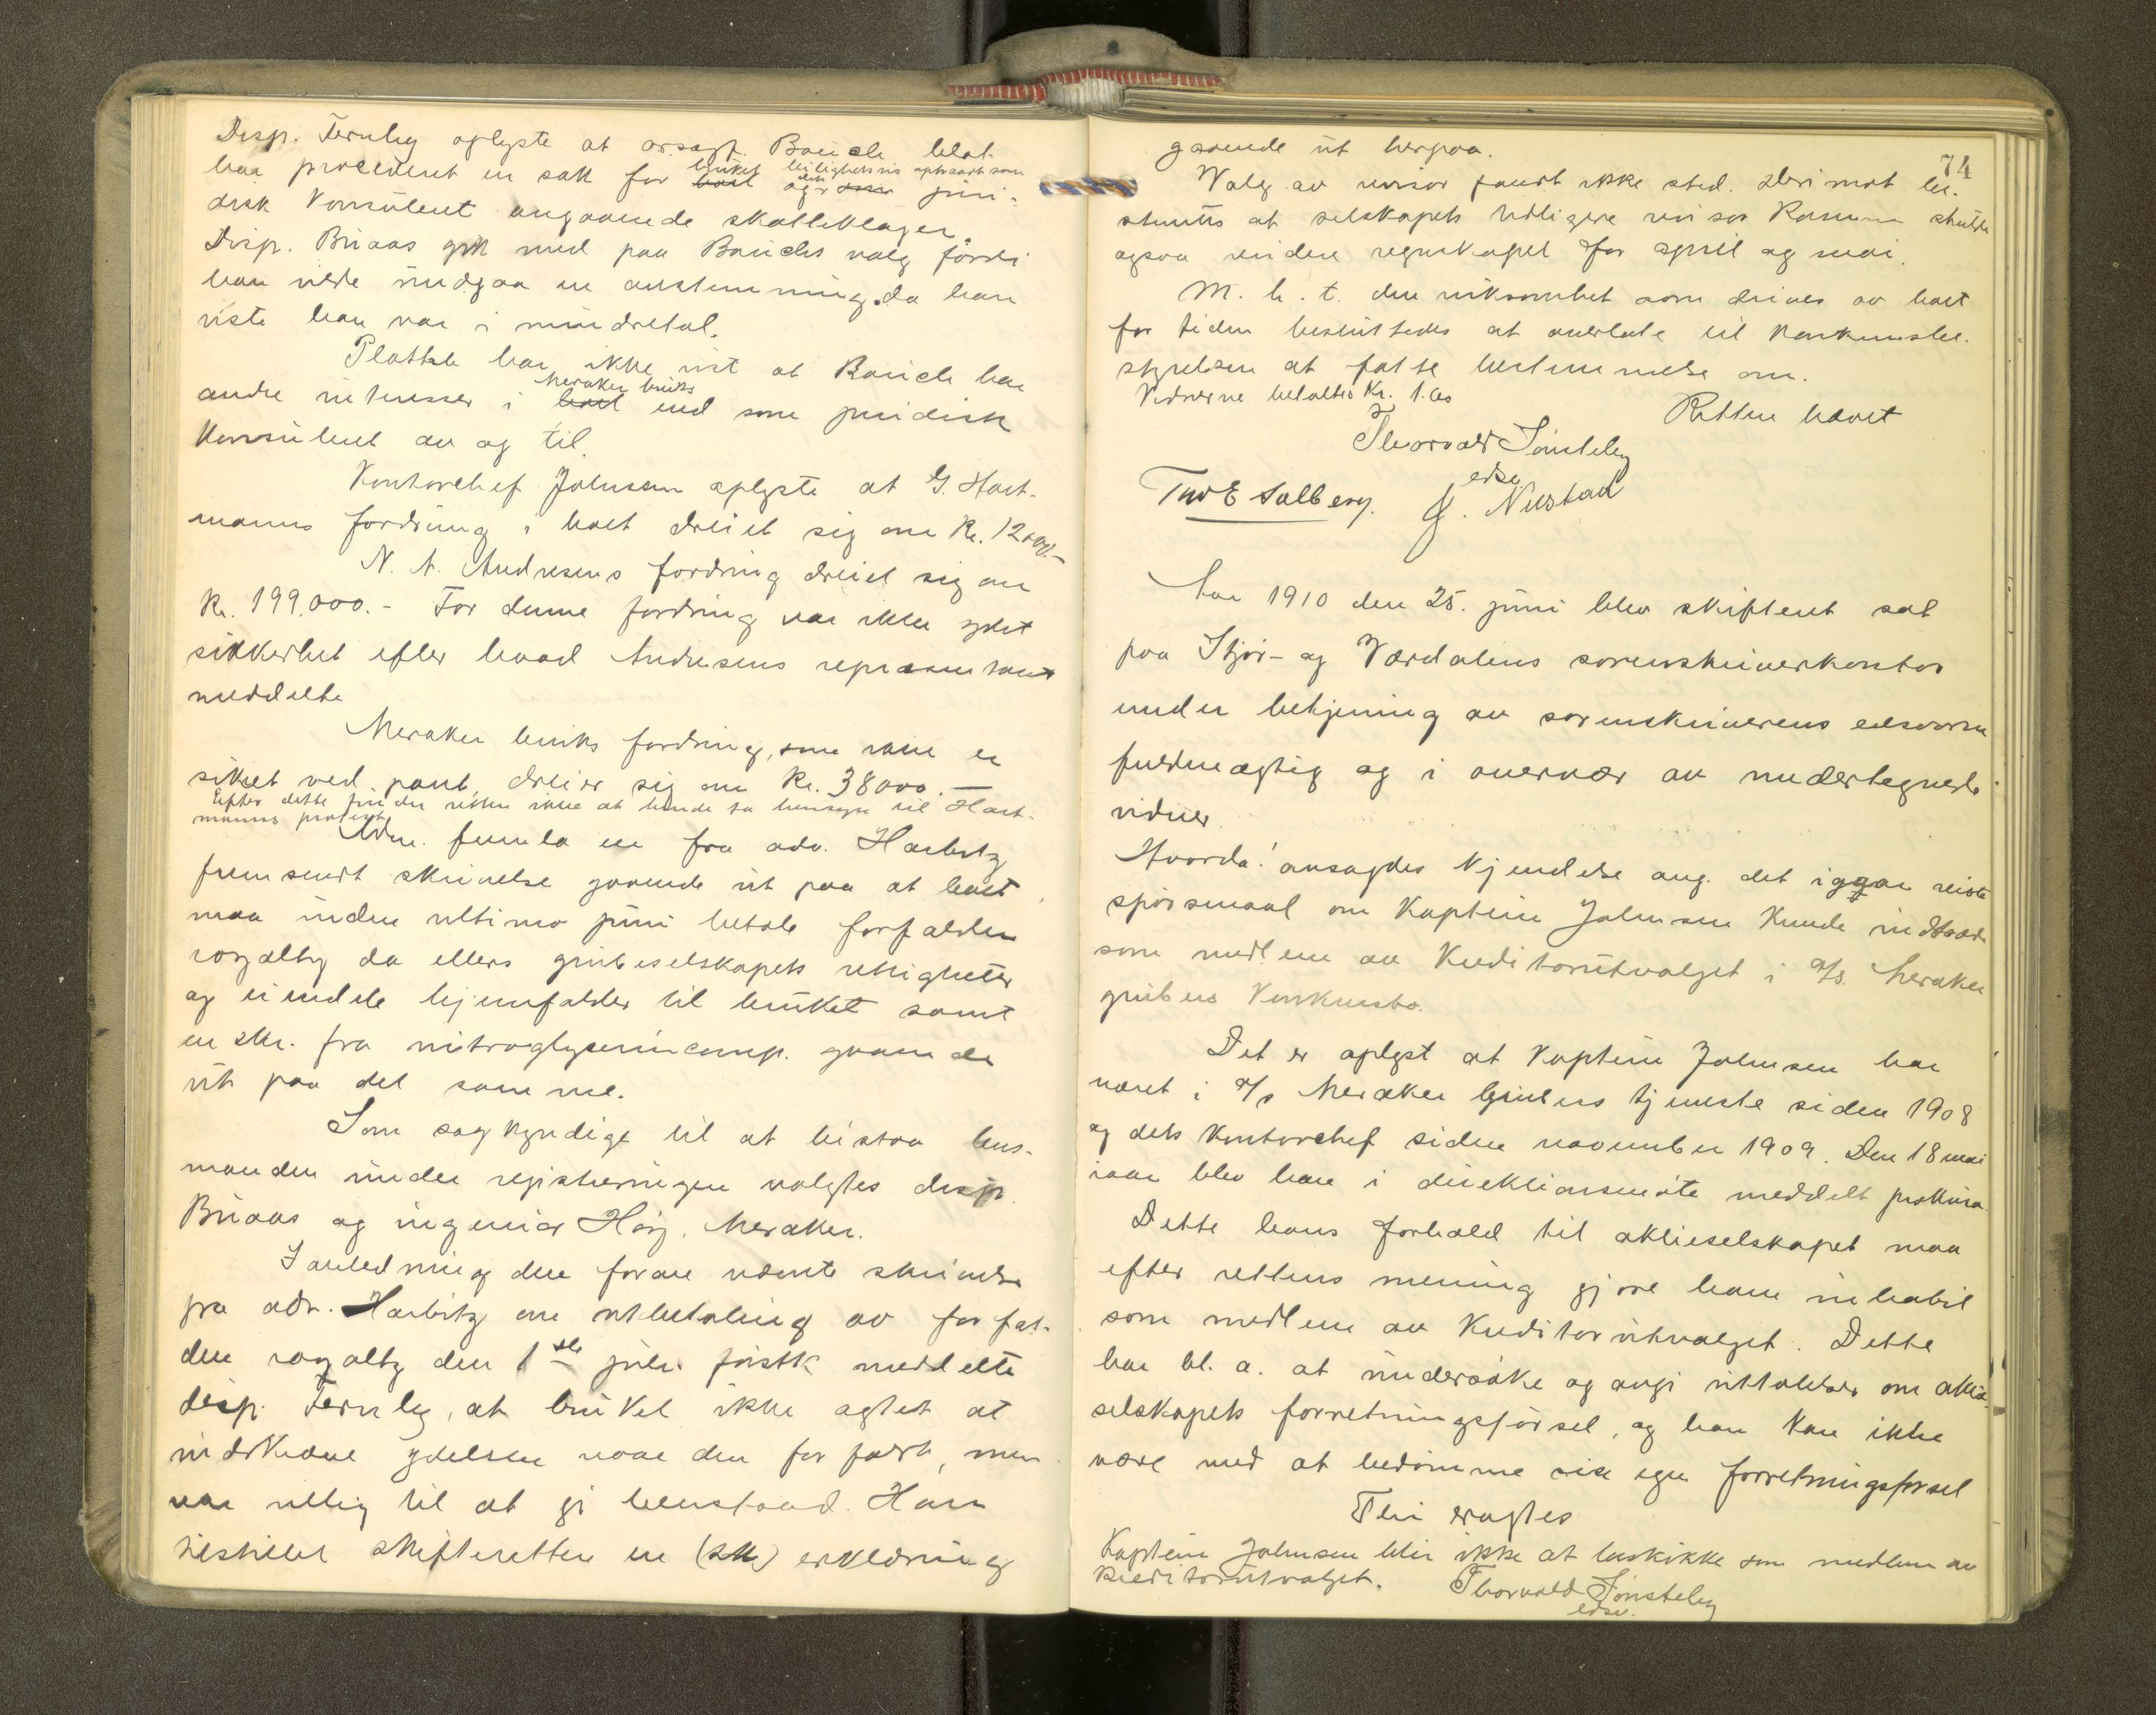 Disp. Fernley oplyste at orsagf. Bauck blot
har procederet en sak for ~~boet~~ bruket og ~~som~~ leilighetsvis optraadt som juri-
disk konsulent angaaende skatteklager.
Disp. Bruaas gik med paa Baucks valg fordi
han vilde undgaa en avstemning da han
viste han var i mindretal.
Plathe har ikke vist at Bauck har
andre interesser i ~~boet~~ Meraker bruk end som juridisk
konsulent av og til.
Kontorchef Johnsen oplyste at G. Hart-
manns fordring i boet dreiet sig om Kr. 12000.-
N. A. Andresens fordring dreiet sig om
Kr. 199.000.- For denne fordring var ikke ydet
sikkerhet efter hvad Andresens repræsentant
meddelte
Meraker bruks fordring, som ikke er
sikret ved pant, dreier sig om Kr. 38000.-
Efter dette finder retten ikke at kunde ta hensyn til Hart-
manns protest.
Adm. fremla en fra adv. Harbitz
fremsendt skrivelse gaaende ut paa at boet
maa inden ultimo juni betale forfalden
royalty da ellers grubeselskapets rettigheter
og eiendele hjemfalder til bruket samt
en skr. fra nitroglycerincomp. gaaende
ut paa det samme.
Som sagkyndige til at bistaa lens-
manden under registreringen valgtes disp.
Bruaas og ingeniør Høy, Meraker.
I anledning den foran nævnte skrivelse
fra adv. Harbitz om utbetaling av forfal-
den royalty den 1ste juli førstk. meddelte
disp. Fernley, at bruket ikke agtet at
indkræve ydelsen naar den forfaldt, men
var villig til at gi henstand. Han
tilstiller skifteretten en (skr) erklæring
74
gaaende ut herpaa.
Valg av revisor fandt ikke sted. Derimot be-
stemtes at selskapets tidligere revisor Ramm skulde
ogsaa revidere regnskapet for april og mai.
M. h. t. den virksomhet som drives av boet
for tiden besluttedes at overlate til konkursbe-
styrelsen at fatte bestemmelse om.
Vidnerne betaltes Kr. 1.
Retten hævet
Thorvald Tønseby
edsv.
Tho E Salberg. J. Nustad
Aar 1910 den 25. juni blev skifteret sat
paa Stjør- og Værdalens sorenskriverkontor
under betjening av sorenskriverens edsvorne
fuldmægtig og i overvær av undertegnede
vidner.
Hvorda! avsagdes kjendelse ang. det igaar reiste
spørsmaal om kaptein Johnsen kunde indtræde
som medlem av kreditorutvalget i A/S. Meraker
grubers konkursbo.
Det er oplyst at kaptein Johnsen har
været i A/S Meraker Grubers tjeneste siden 1908
og dets kontorchef siden november 1909. Den 18 mai
iaar blev han i direktionsmøte meddelt prokura.
Dette hans forhold til aktieselskapet maa
efter rettens mening gjøre ham inhabil
som medlem av kreditorutvalget. Dette
har bl. a. at undersøke og avgi uttalelser om aktie-
selskapets forretningsførsel, og han kan ikke
være med at bedømme sin egen forretningsførsel
Thi eragtes
Kaptein Johnsen blir ikke at beskikke som medlem av
kreditorutvalget. Thorvald Tønseby
edsv.